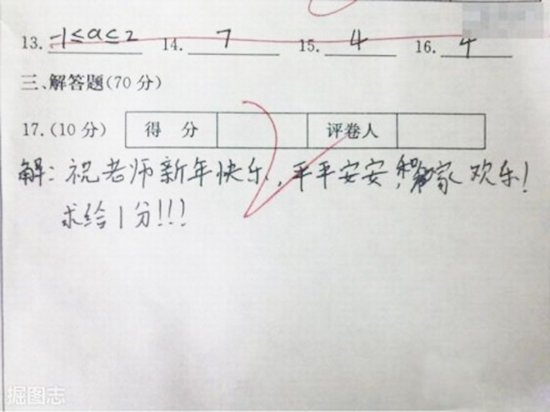 13. -1≤a≤2 14. 7 15. 4 16. 4
三、解答题(70分)
17.(10分) 得 分 评卷人
解: 祝老师新年快乐, 平平安安, 家欢乐!
求给1分!!!
掘图志